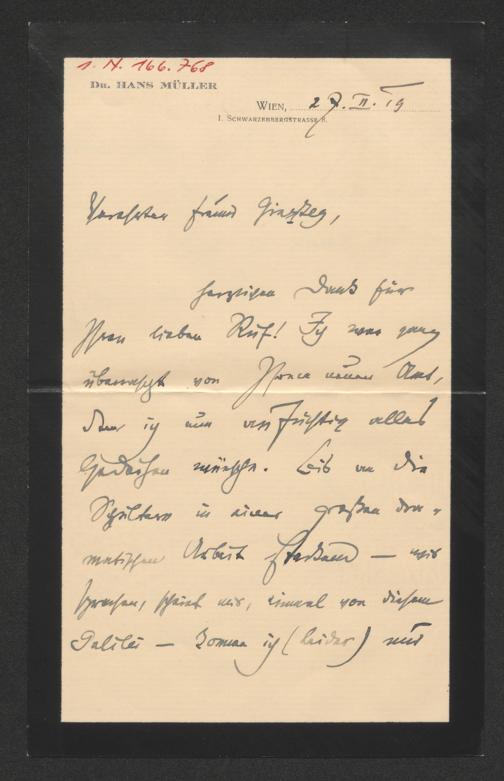 I. N. 166.768
DR. HANS MÜLLER
WIEN, 27. II. 19
I. SCHWARZENBERGSTRASSE 8.
Verehrter Freund Ginzkey,
herzlichen Dank für
Ihren lieben Ruf! Ich war ganz
überrascht von Ihrem neuen Amt,
dem ich nun aufrichtig alles
Gedeihen wünsche. Bis an die
Schultern in einer großen dra-
matischen Arbeit steckend — wir
sprachen, scheint mir, einmal von diesem
Galilei — komme ich (leider) nur